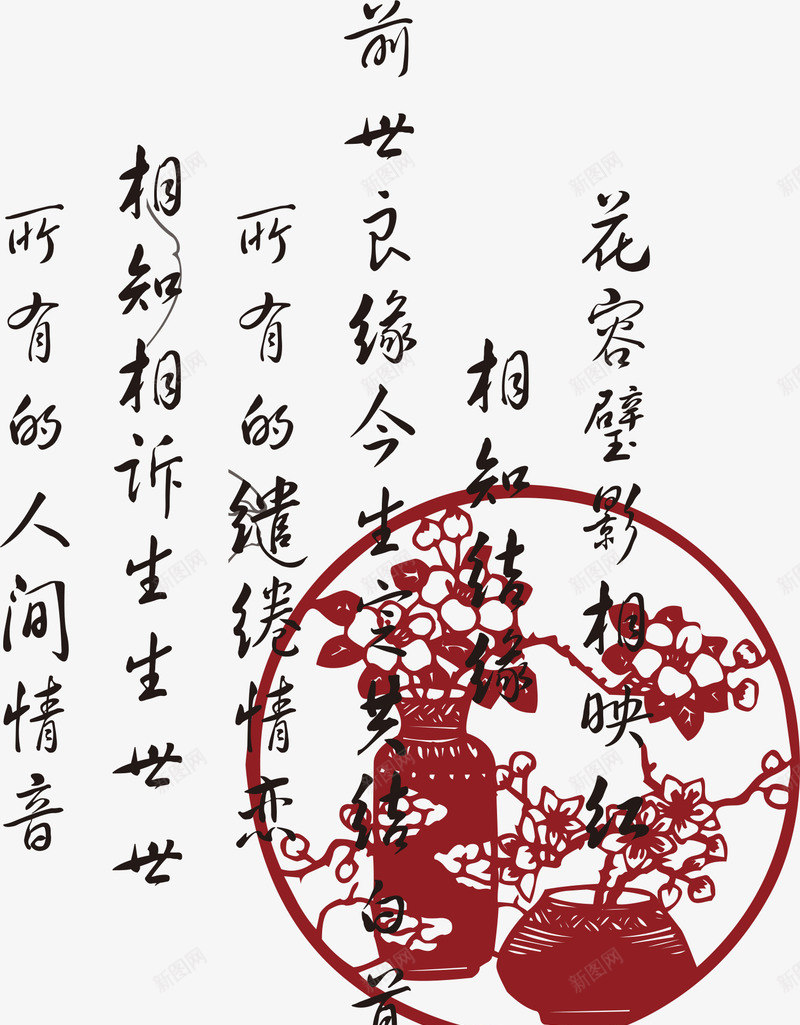 花容璧影相映红
相知结缘
前世良缘今生定共结白首
所有的缱绻情恋
相知相诉生生世世
所有的人间情音
新图网